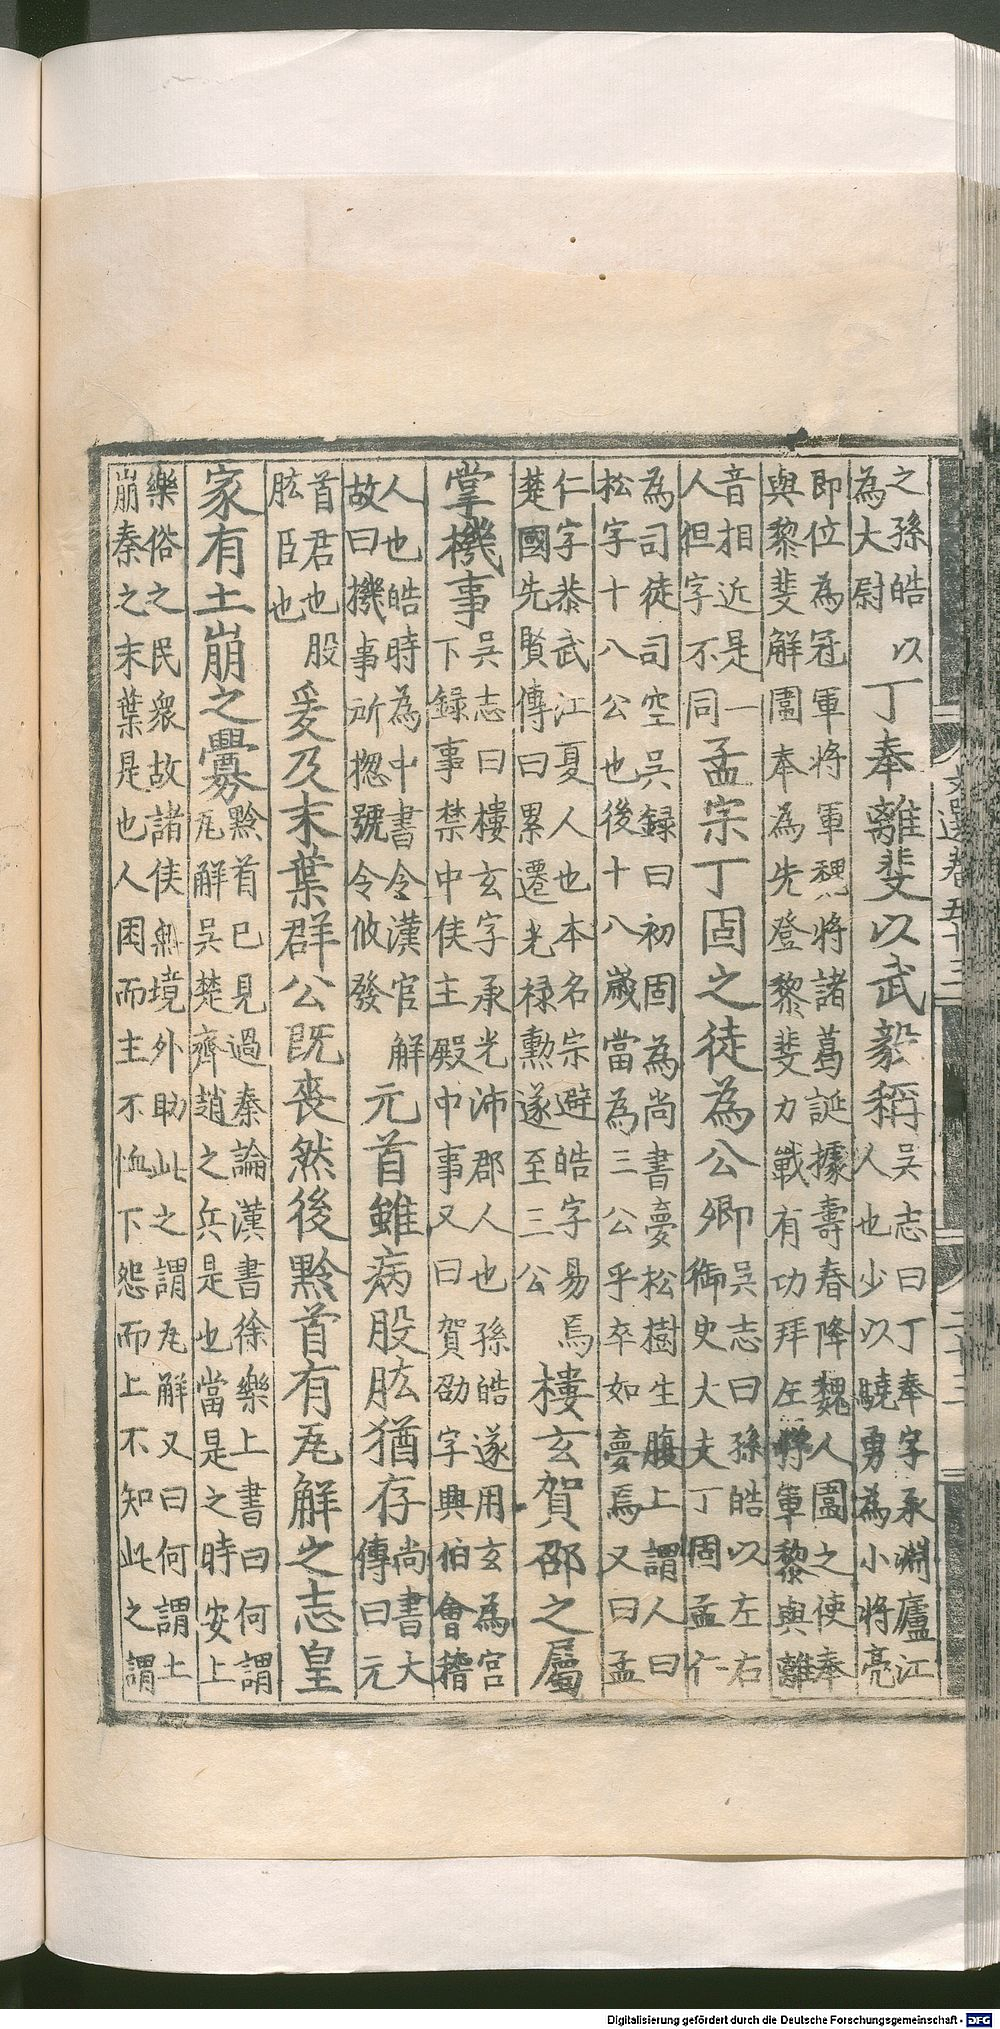 文選卷五十三 二十三
之孫皓以
為大尉
丁奉離斐以武毅稱
吳志曰丁奉字承淵廬江
人也少以驍勇為小將亮
即位為冠軍將軍魏將諸葛誕據壽春降魏人圍之使奉
與黎斐解圍奉為先登黎斐力戰有功拜左將軍黎與離
音相近是一
人但字不同
孟宗丁固之徒為公卿
吳志曰孫皓以左右
御史大夫丁固孟仁
為司徒司空吳録曰初固為尚書夢松樹生腹上謂人曰
松字十八公也後十八歲當為三公乎卒如夢焉又曰孟
仁字恭武江夏人也本名宗避皓字易焉
楚國先賢傳曰累遷光禄勳遂至三公
樓玄賀邵之屬
掌機事
吳志曰樓玄字承光沛郡人也孫皓遂用玄為宮
下録事禁中侯主殿中事又曰賀劭字興伯會稽
人也皓時為中書令漢官解
故曰機事所揔號令攸發
元首雖病股肱猶存
尚書大
傳曰元
首君也股
肱臣也
爰及末葉群公既喪然後黔首有瓦解之志皇
家有土崩之釁
黔首已見過秦論漢書徐樂上書曰何謂
瓦解吳楚齊趙之兵是也當是之時安上
樂俗之民衆故諸侯無境外助此之謂瓦解又曰何謂土
崩秦之末葉是也人困而主不恤下怨而上不知此之謂
Digitalisierung gefördert durch die Deutsche Forschungsgemeinschaft - DFG